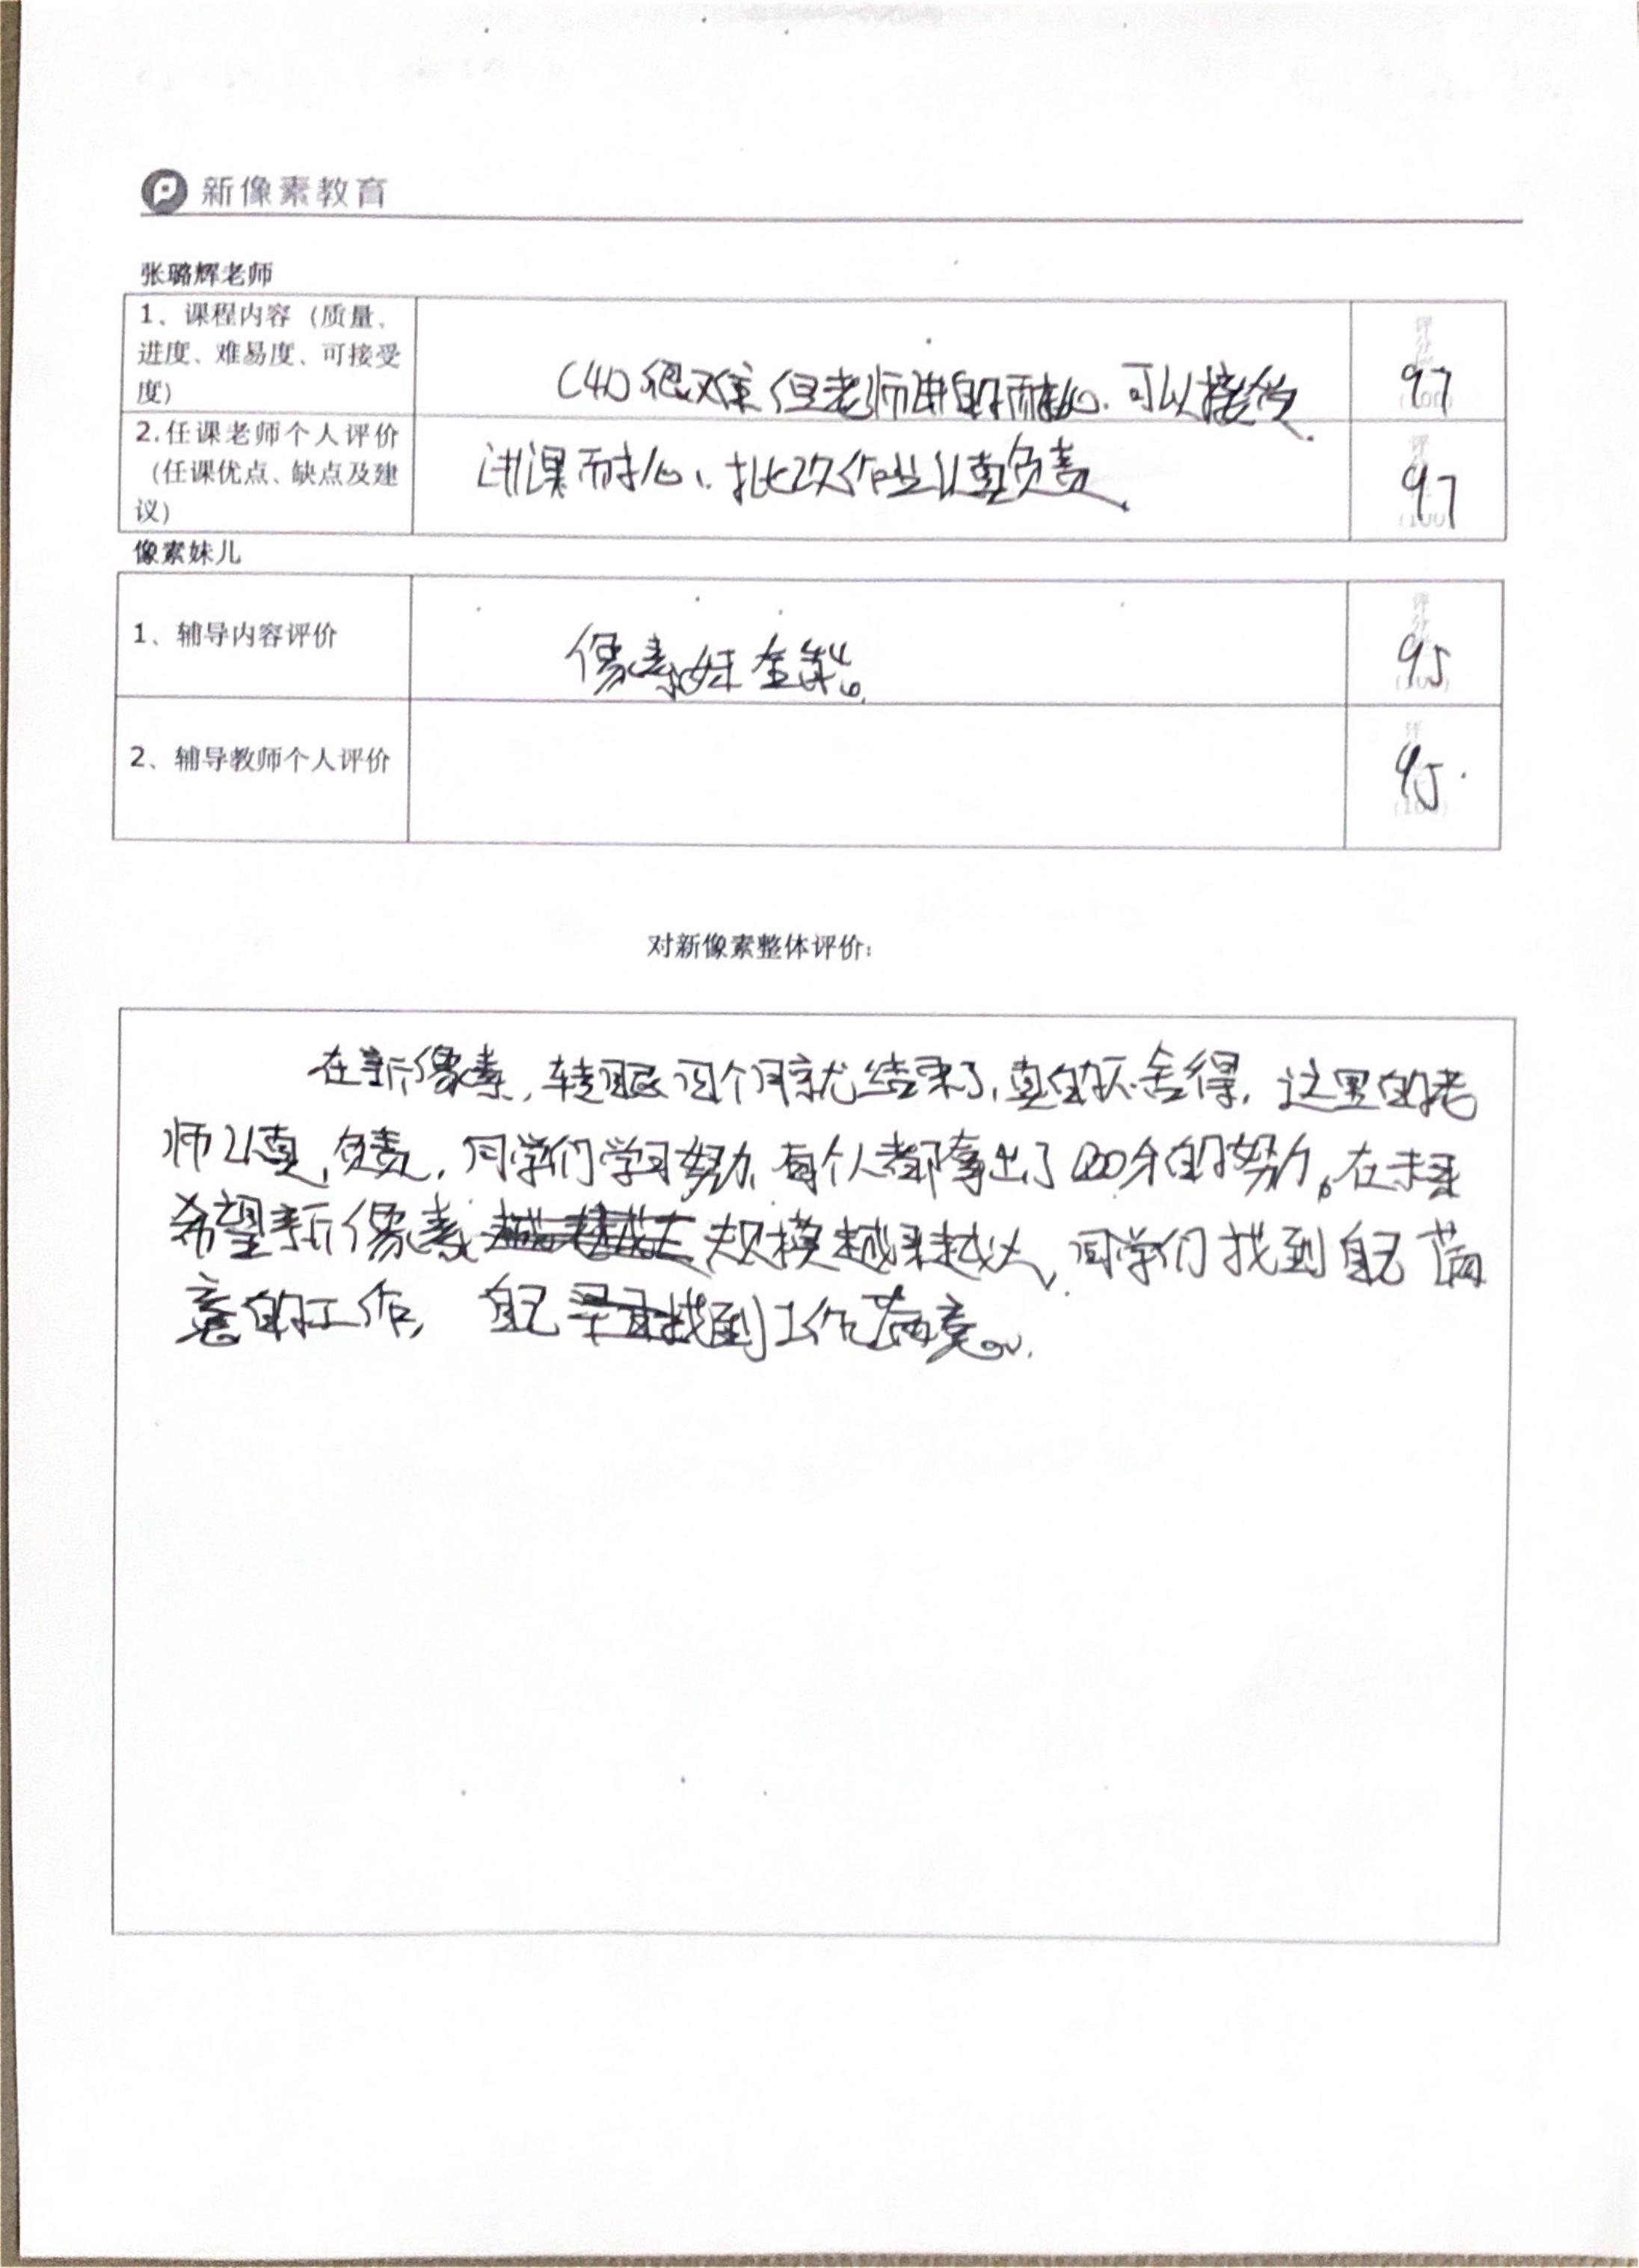 新像素教育
张璐辉老师
1、课程内容（质量、
进度、难易度、可接受
度）
C4D很难但老师讲的耐心.可以接受.
评分
97
2.任课老师个人评价
（任课优点、缺点及建
议）
讲课耐心、批改作业认真负责
评
97
像素妹儿
1、辅导内容评价
像素妹全能。
评分
95
2、辅导教师个人评价
评
95.
对新像素整体评价：
在新像素,转眼四个月就结束了,真的不舍得,这里的老
师认真,负责,同学们学习努力,每个人都拿出了120分的努力。在未来
希望新像素规模越来越大,同学们找到自己满
意的工作,自己找到工作满意。